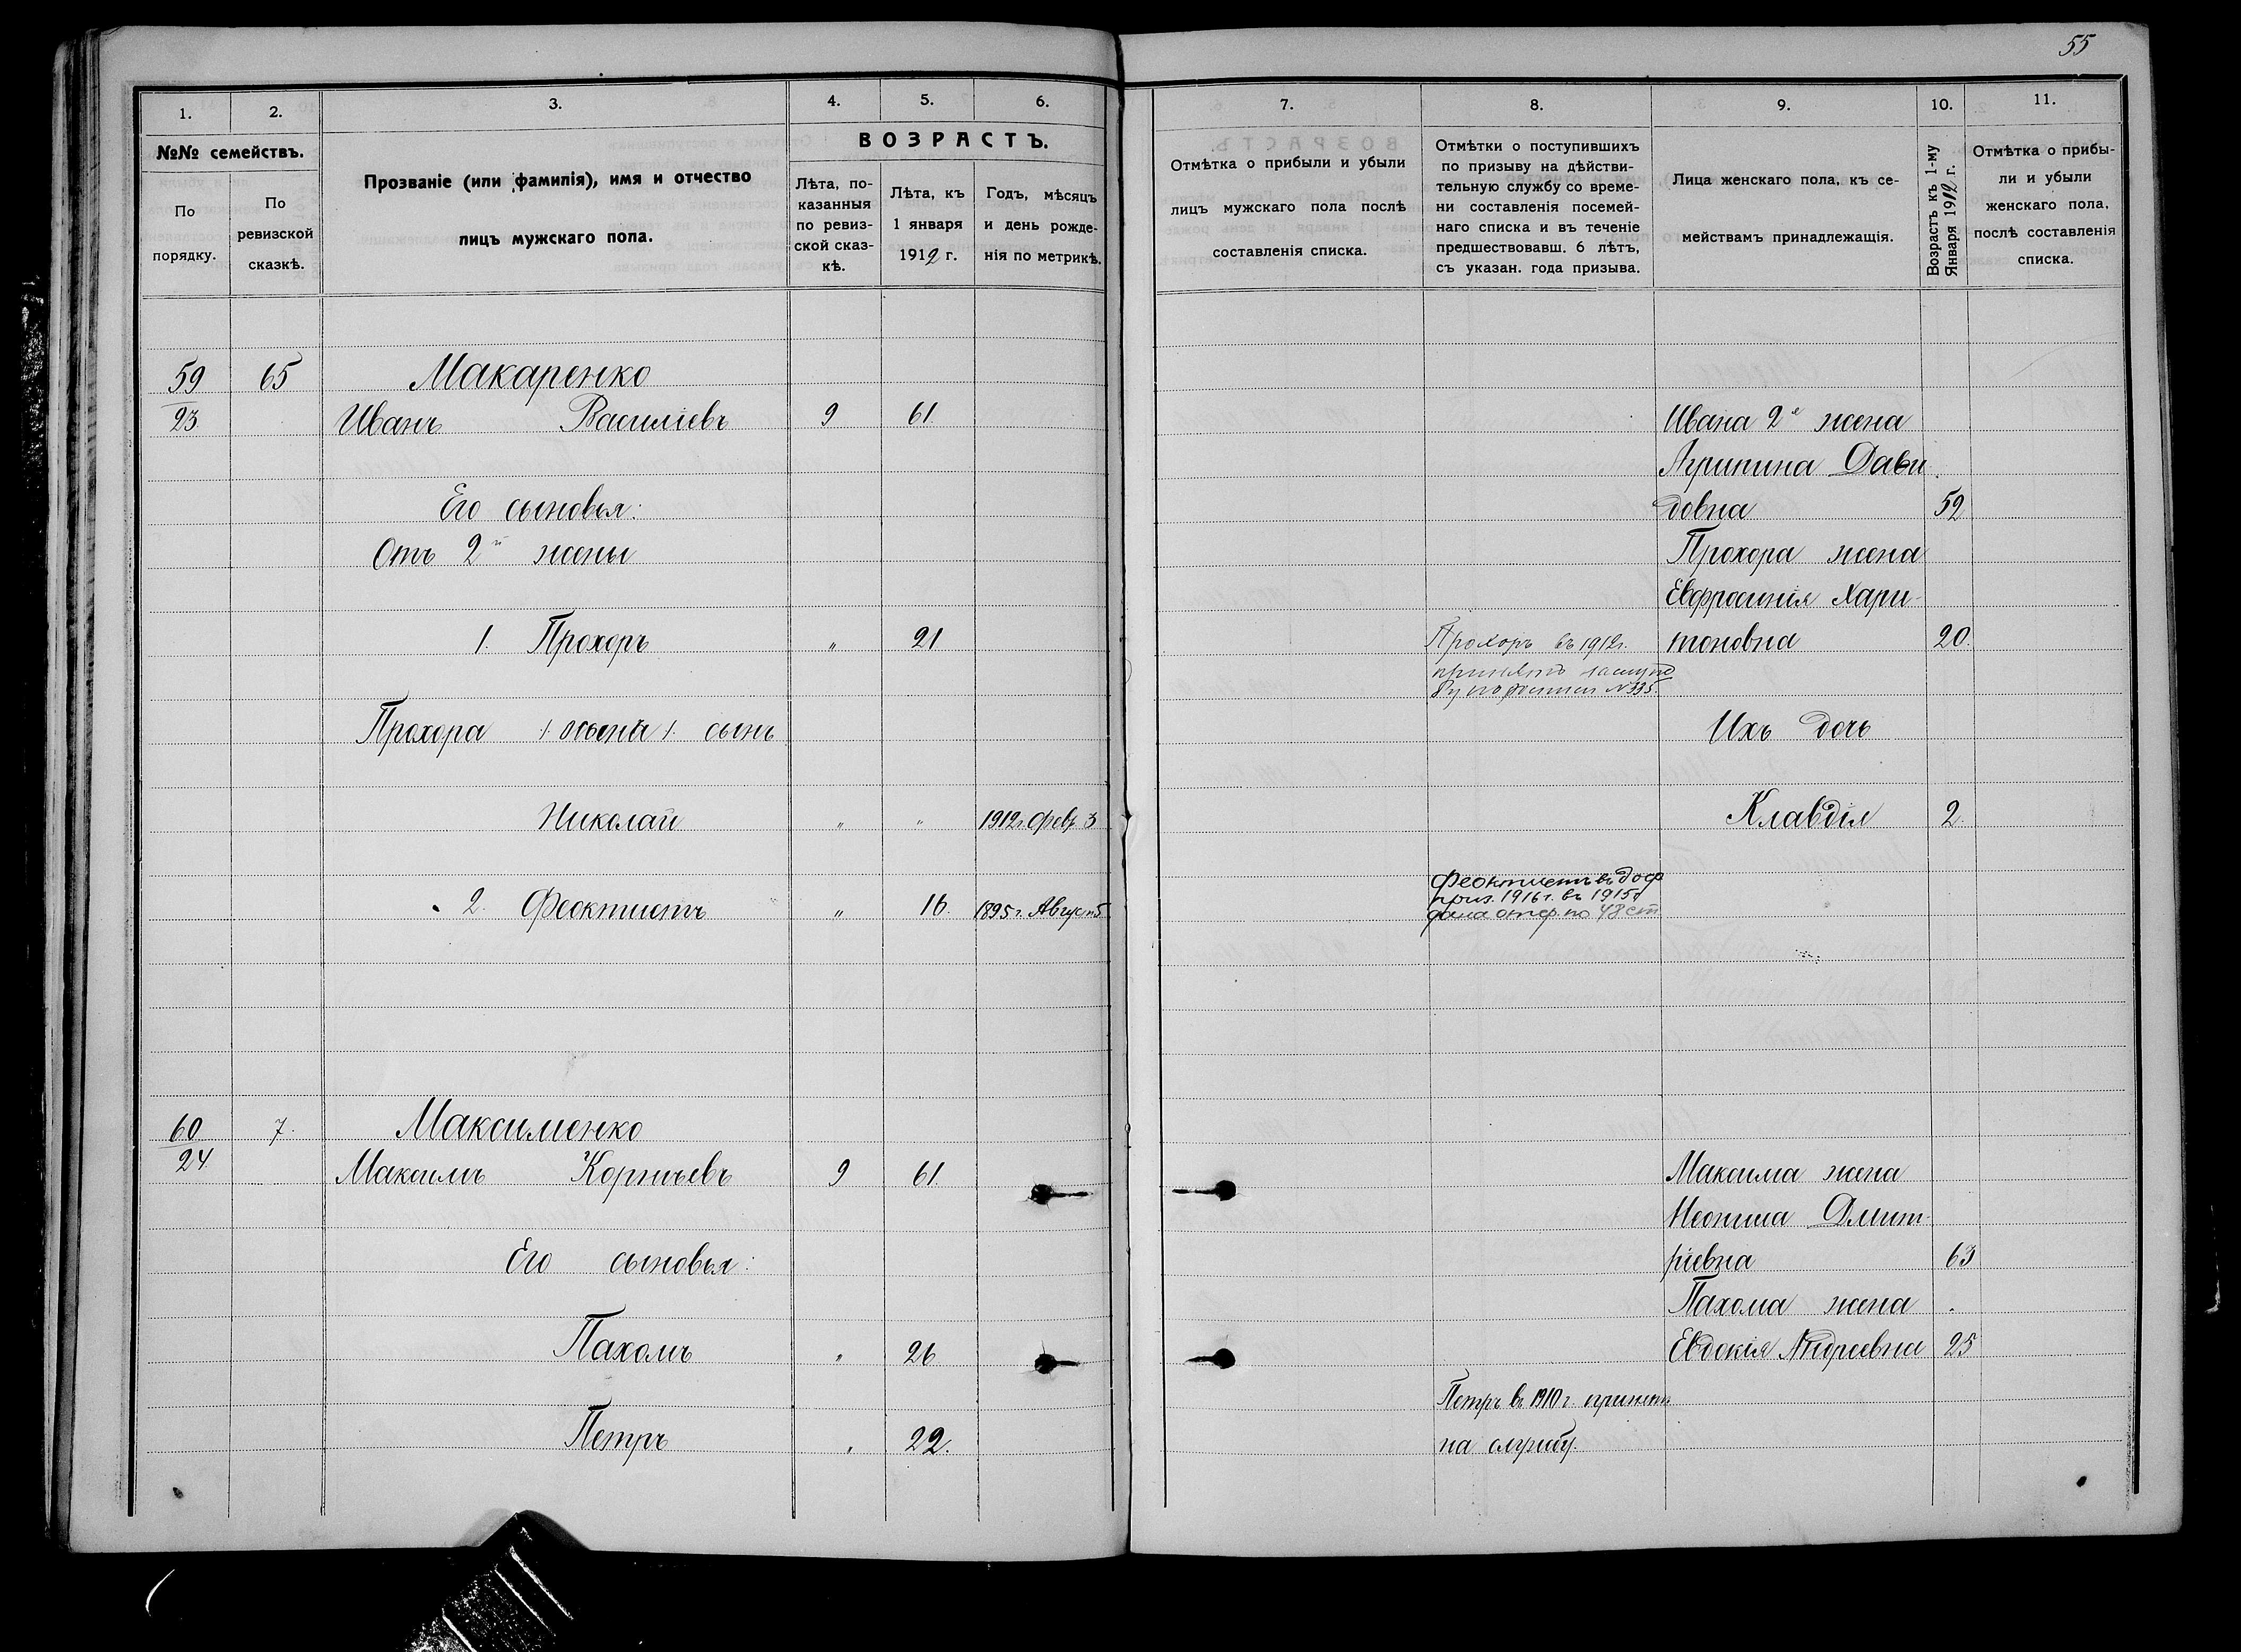 55
1.
2.
3.
4.
5.
6.
7.
8.
9.
10.
11.
№№ семействъ.
По порядку.
По ревизской сказкѣ.
Прозваніе (или фамилія), имя и отчество
лицъ мужскаго пола.
ВОЗРАСТЪ.
Лѣта, по-
казанныя
по ревиз-
ской сказ-
кѣ.
Лѣта, къ
1 января
1912 г.
Годъ, мѣсяцъ
и день рожде-
нія по метрикѣ.
Отмѣтка о прибыли и убыли
лицъ мужскаго пола послѣ
составленія списка.
Отмѣтки о поступившихъ
по призыву на дѣйстви-
тельную службу со време-
ни составленія посемей-
наго списка и въ теченіе
предшествовавш. 6 лѣтъ,
съ указан. года призыва.
Лица женскаго пола, къ се-
мействамъ принадлежащія.
Возрастъ къ 1-му
Января 1912 г.
Отмѣтка о прибы-
ли и убыли
женскаго пола,
послѣ составленія
списка.
59 65 Макаренко
23 Иванъ Василіевъ 9 61 Ивана 2я жена
Агрипина Дави
Его сыновья: довна 52
Отъ 2й жены Прохора жена
Евфросинія Хари-
1. Прохоръ " 21 Прохоръ въ 1912г. тоновна 20.
принятъ на служ
бу по росписи №335.
Прохора сынъ Ихъ дочь
Николай " " 1912г. Февр 3 Клавдія 2.
Феоктистъ въ
приз. 1916 г. въ 1915г
2. Феоктистъ " 16. 1895 г. Август 5 по 48 ст
60 7. Максименко
24 Максимъ Корнѣевъ 9 61 Максима жена
Неонила Дмит-
Его сыновья: ріевна 63
Пахома жена
Пахомъ " 26 Евдокія Андреевна 25
Петръ въ 1910 г. принятъ
Петръ " 22. на службу.